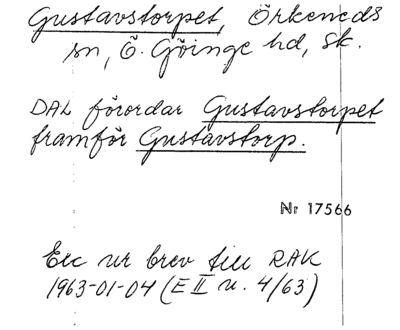 Gustavstorpet, Örkeneds
sn, Ö. Göinge hd, Sk.
DAL förordar Gustavstorpet
framför Gustavstorp.
Nr 17566
Exc ur brev till RAK
1963-01-04 (E II u. 4/63)